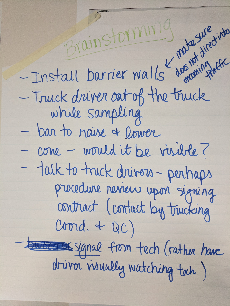 Brainstorming
- Install barrier walls
make sure
does not direct into
oncoming
traffic
- Truck driver out of the truck
while sampling
- bar to raise & lower
- cone - would it be visible?
- talk to truck drivers - perhaps
procedure review upon signing
contract (contact by trucking
Coord. & QC)
- signal from tech (rather have
driver visually watching tech)